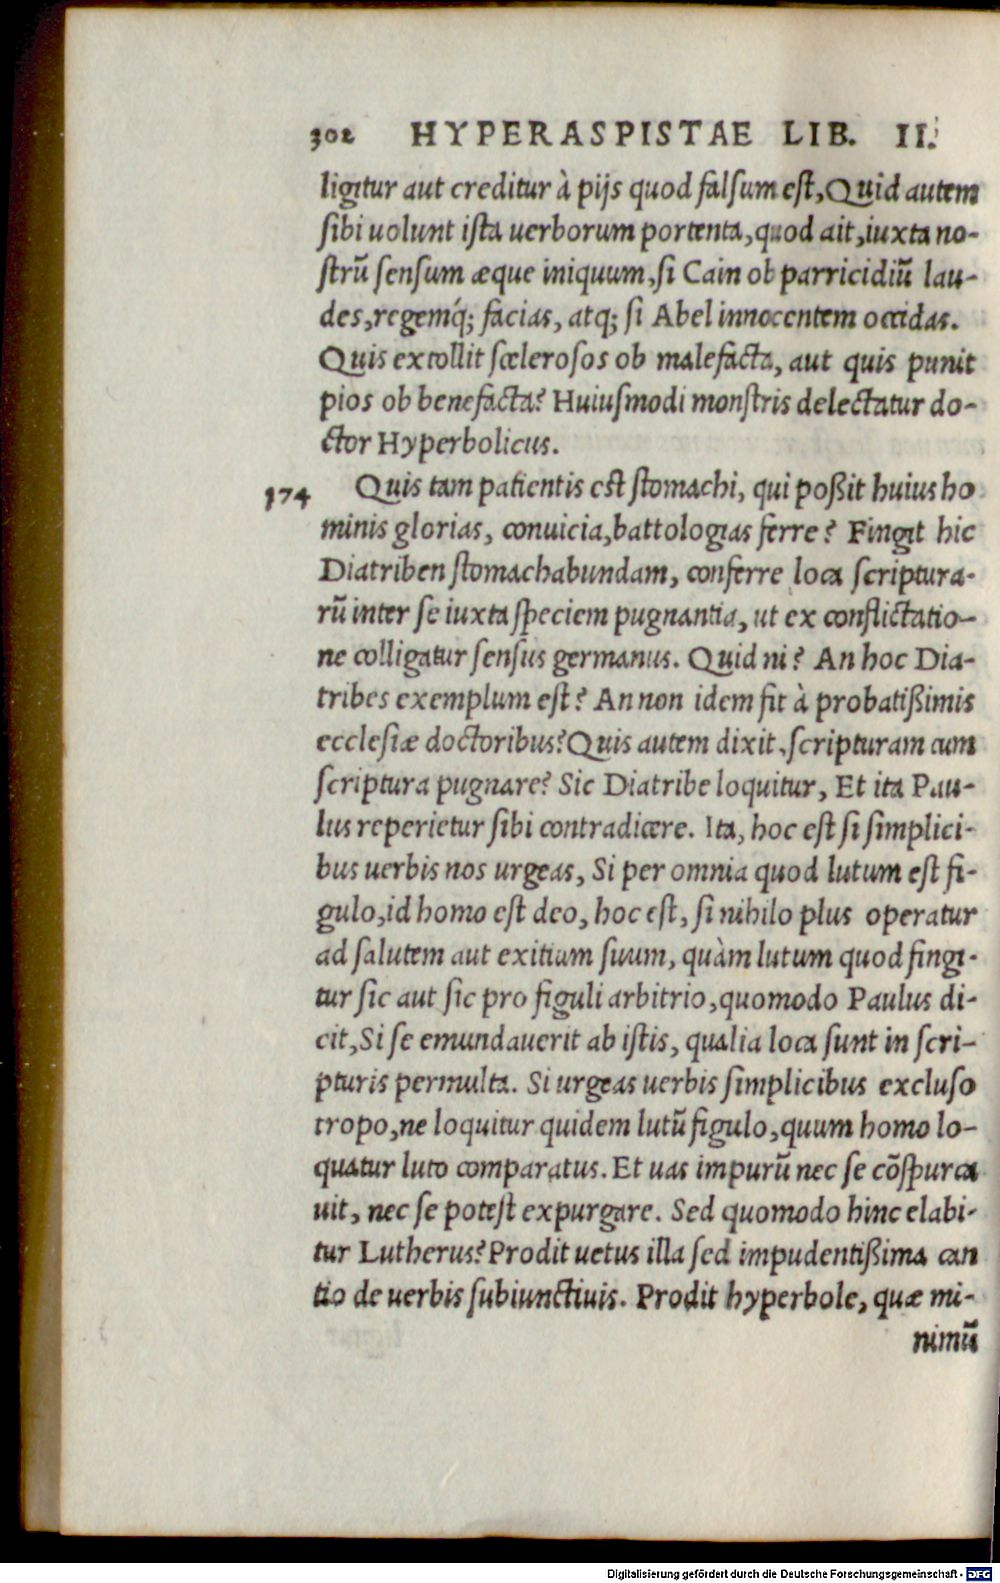 302 HYPERASPISTAE LIB. II.
ligitur aut creditur à pijs quod falsum est, Quid autem
sibi uolunt ista uerborum portenta, quod ait, iuxta no-
strũ sensum æque iniquum, si Cain ob parricidiũ lau-
des, regemq́; facias, atq; si Abel innocentem occidas.
Quis extollit scelerosos ob malefacta, aut quis punit
pios ob benefacta? Huiusmodi monstris delectatur do-
ctor Hyperbolicus.
374 Quis tam patientis est stomachi, qui poßit huius ho
minis glorias, conuicia, battologias ferre? Fingit hic
Diatriben stomachabundam, conferre loca scriptura-
rũ inter se iuxta speciem pugnantia, ut ex conflictatio-
ne colligatur sensus germanus. Quid ni? An hoc Dia-
tribes exemplum est? An non idem fit à probatißimis
ecclesiæ doctoribus? Quis autem dixit, scripturam cum
scriptura pugnare? Sic Diatribe loquitur, Et ita Pau-
lus reperietur sibi contradicere. Ita, hoc est si simplici-
bus uerbis nos urgeas, Si per omnia quod lutum est fi-
gulo, id homo est deo, hoc est, si nihilo plus operatur
ad salutem aut exitium suum, quàm lutum quod fingi-
tur sic aut sic pro figuli arbitrio, quomodo Paulus di-
cit, Si se emundauerit ab istis, qualia loca sunt in scri-
pturis permulta. Si urgeas uerbis simplicibus excluso
tropo, ne loquitur quidem lutũ figulo, quum homo lo-
quatur luto comparatus. Et uas impurũ nec se cõspurca
uit, nec se potest expurgare. Sed quomodo hinc elabi-
tur Lutherus? Prodit uetus illa sed impudentißima can
tio de uerbis subiunctiuis. Prodit hyperbole, quæ mi-
nimũ
Digitalisierung gefördert durch die Deutsche Forschungsgemeinschaft - DFG